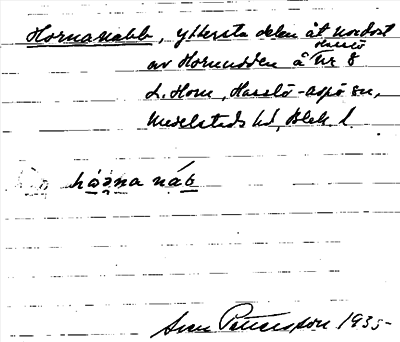 Hornanabb, yttersta delen åt nordost
av Hornudden å Hasslö nr 8
L. Horn, Hasslö-Aspö sn,
Medelsteds hd, Blek. l.
hóǝna náb
Sven Pettersson 1935